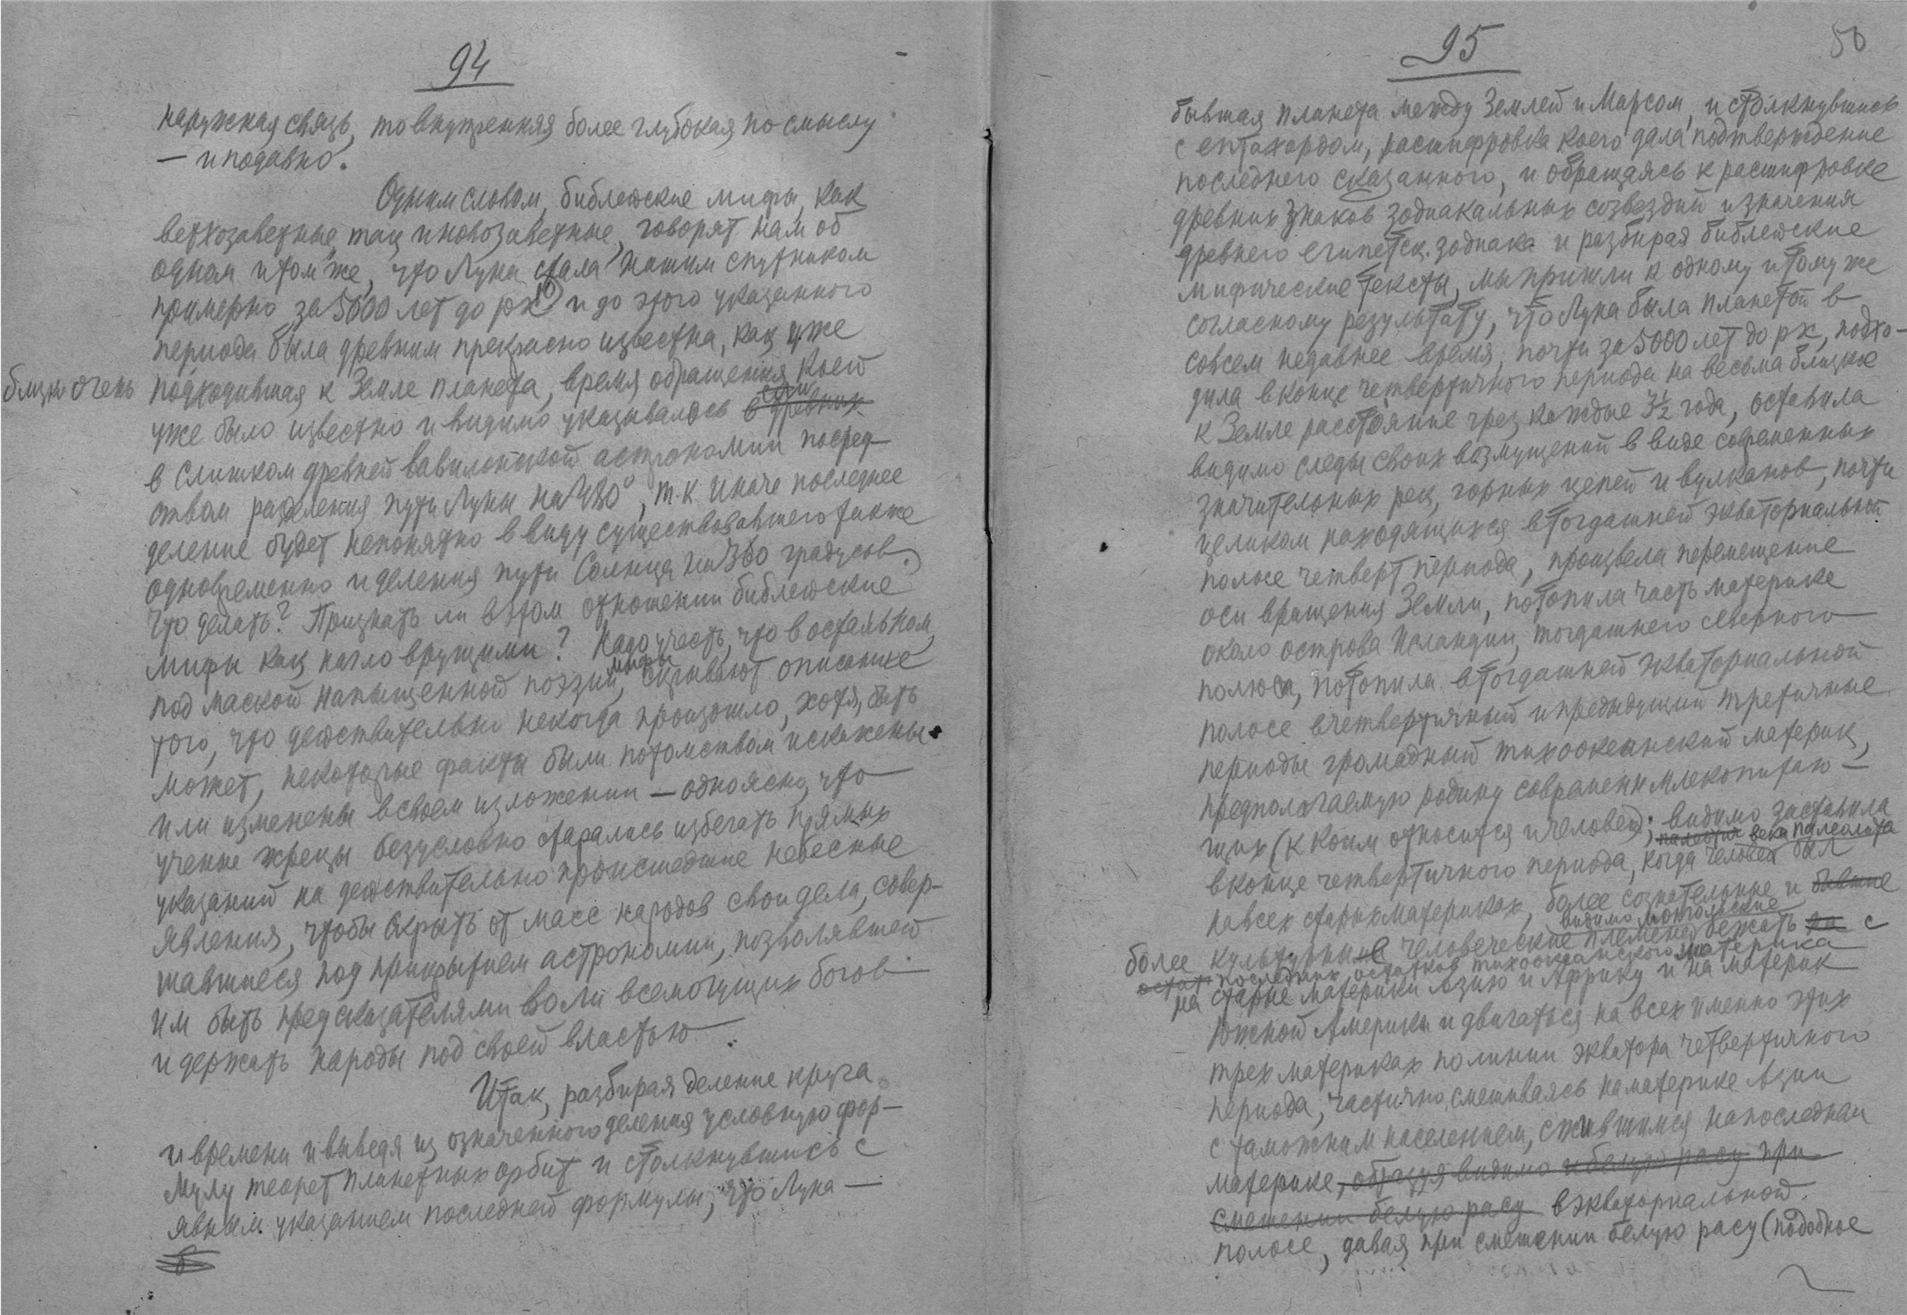 94
наружная связь, то внутренняя более глубокая по смыслу
— и подавно.
Одним словом, библейские мифы, как
ветхозаветные, так и новозаветные, говорят нам об
одном и том же, что Луна стала нашим спутником
примерно за 5000 лет до рх и до этого указанного
периода была древним прекрасно известна, как уже
близко очень подходившая к Земле планета, время обращения коей
уже было известно и видимо указывалось в древних
в слишком древней вавилонской астрономии посред-
ством разделения пути Луны на 480°, т.к. иначе последнее
деление будет непонятно в виду существовавшего также
одновременно и деления пути Солнца на 360 градусов.
Что делать? Признать ли в этом отношении библейские
мифы как нагло врущими? Надо учесть, что в остальном,
под маской напыщенной поэзии, мифы скрывают описание
того, что действительно некогда произошло, хотя, быть
может, некоторые факты были потомством искажены
или изменены в своем изложении — одно ясно, что
ученые жрецы безусловно старались избегать прямых
указаний на действительно происшедшие небесные
явления, чтобы скрыть от масс народов свои дела, совер-
шавшиеся под прикрытием астрономии, позволявшей
им быть предсказателями воли всемогущих богов
и держать народы под своей властью.
Итак, разбирая деление круга
и времени и выведя из означенного деления условную фор-
мулу теорет планетных орбит и столкнувшись с
явным указанием последней формулы, что Луна —
95
50
бывшая планета между Землей и Марсом, и столкнувшись
с ептахордом, расшифровка коего дала подтверждение
последнего сказанного, и обращаясь к расшифровке
древних знаков зодиакальных созвездий и значения
древнего египетск. зодиака и разбирая библейские
мифические тексты, мы пришли к одному и тому же
согласному результату, что Луна была планетой в
совсем недавнее время, почти за 5000 лет до рх, подхо-
дила в конце четвертичного периода на весьма близкое
к Земле расстояние чрез каждые 7½ года, оставила
видимо следы своих возмущений в виде современных
значительных рек, горных цепей и вулканов, почти
целиком находящихся в тогдашней экваториальной
полосе четверт периода, произвела перемещение
оси вращения Земли, потопила часть материка
около острова Исландии, тогдашнего северного
полюса, потопила в тогдашней экваториальной
полосе в четвертичный и предыдущий третичные
периоды громадный тихоокеанский материк,
предполагаемую родину современ млекопитаю-
щих (к коим относится и человек); видимо заставила
в конце четвертичного периода, века палеолита когда человек был
на всех старых материках, более сознательные и бывшие
более культурные человеческие видимо монгольские племена бежать с
последних остатков тихоокеанского материка
на старые материки Азию и Африку и на материк
Южной Америки и двигаться на всех именно этих
трех материках по линии экватора четвертичного
периода, частично смешиваясь на материке Азии
с таможним населением, сжившимся на последнем
материке, образуя видимо и белую расу при
смешении белую расу в экваториальной
полосе, давая при смешении белую расу (подобное